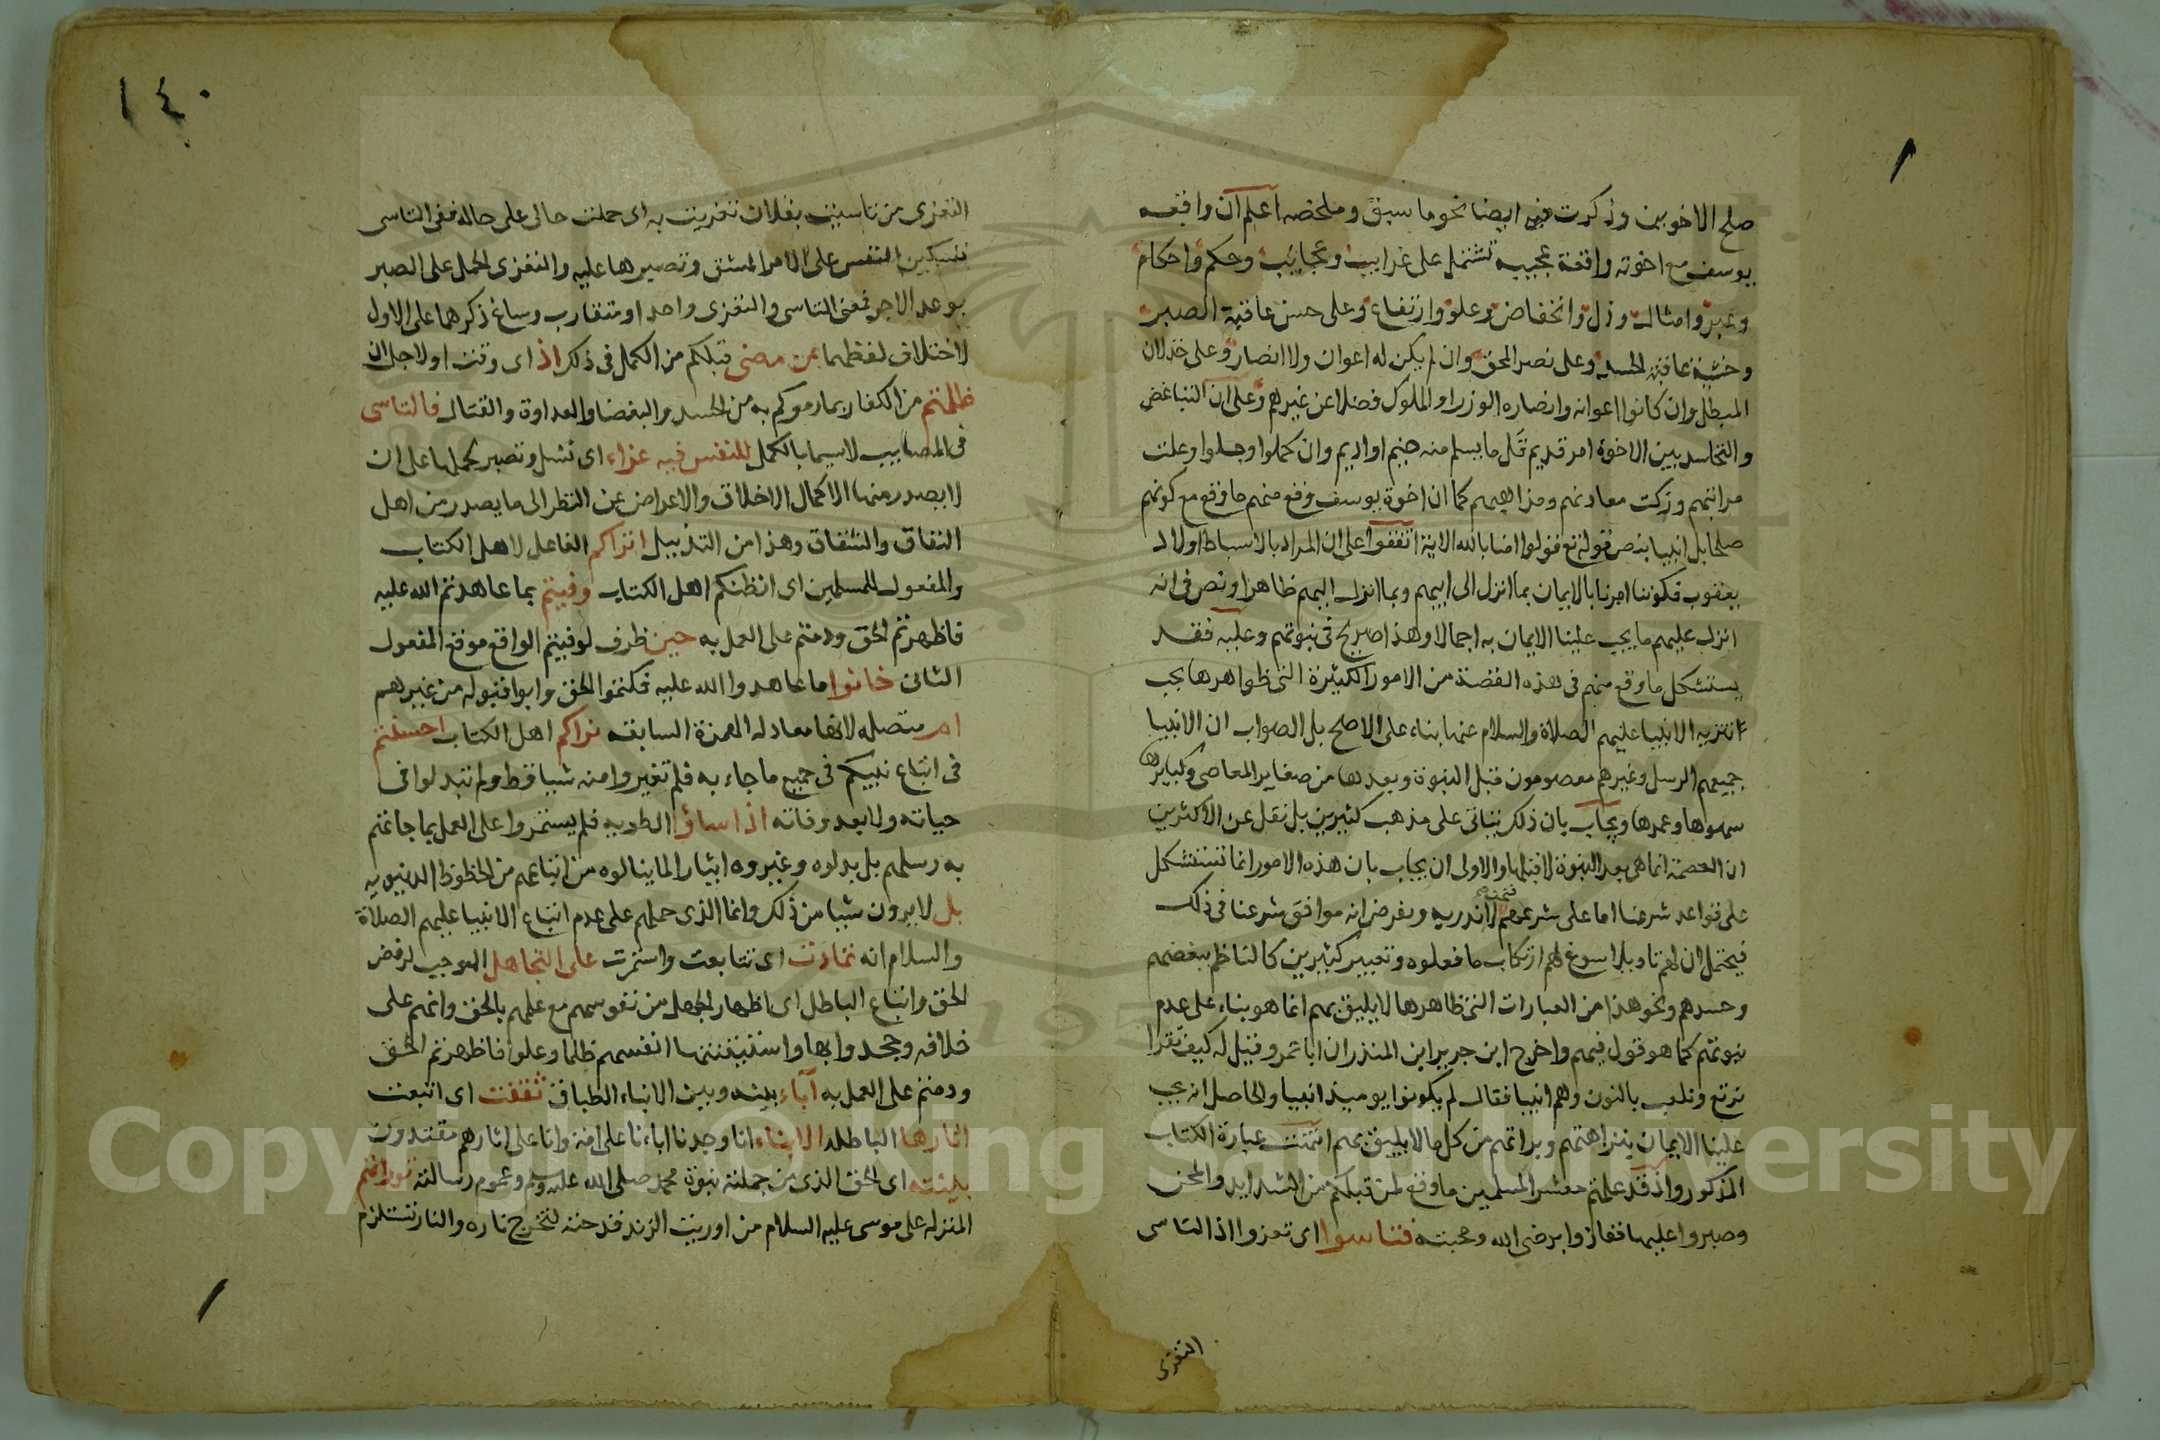 صلح الاخوين وذكرت فيه ايضا نحو ما سبق وملخصه اعلم ان واقعه
يوسف مع اخوته واقعة عجيبه تشتمل على غرايب وعجايب وحكم واحكام
وعبر وامثال وذل وانخفاض وعلو وارتفاع وعلى حسن عاقبة الصبر
وعاقبة الحسد وعلى نصر المحق وان لم يكن له اعوان ولا انصار وعلى خذلان
المبطل وان كانوا اعوانه وانصاره الوزرا والملوك فضلا عن غيرهم وعلى ان التباغض
والتحاسد بين الاخوة امر قديم قل ما يسلم منه وان كملوا وجلوا وعلت
مراتبهم وزكت معادنهم ومذاهبهم كما ان اخوة يوسف وقع منهم ما وقع مع كونهم
صلحا بل انبيا بنص قوله تع قولوا امنا بالله الاية اتفقوا على ان المراد بالاسباط اولاد
يعقوب فكوننا امرنا بالايمان بما انزل الى ابيهم وبما انزل اليهم ظاهر او نص فى انه
انزل عليهم ما يجب علينا الايمان به اجمالا وهذا صريح فى نبوتهم وعليه فقد
يستشكل ما وقع منهم فى هذه القصة من الامور الكثيرة التى ظواهرها يجب
تنزيه الانبيا عليهم الصلاة والسلام عنها بناء على الاصح بل الصواب ان الانبيا
جميعهم الرسل وغيرهم معصومون قبل النبوة وبعدها من صغاير المعاصى وكبايرها
سهوها وعمدها ويجاب بان ذلك يتاتى على مذهب كثيرين بل نقل عن الاكثرين
ان العصمة انما هى بعد النبوة لا قبلها والاولى ان يجاب بان هذه الامور انما تستشكل
على قواعد شرعنا اما على شرعهم لا ندريه وبفرض انه موافق شرعنا فى ذلك
فيحتمل ان لهم تاويلا سوغ لهم ارتكاب ما فعلوه وتعبير كثيرين كالناظم ببغضهم
وحسدهم ونحو هذا من العبارات التى ظاهرها لا يليق بهم انما هو بناء على عدم
نبوتهم كما هو قول فيهم واخرج ابن جرير ابن المنذر ان ابا عمرو قيل له كيف تقرا
نرتع ونلعب بالنون وهم انبيا فقال لم يكونوا يوميذ انبيا والحاصل انه يجب
علينا الايمان بنزاهتهم وبراتهم من كل ما لا يليق بهم انتهت عبارة الكتاب
المذكور واذ قد علمتم معشر المسلمين ما وقع لمن قبلكم من الشدايد والمحن
وصبروا عليها ففازوا برضى الله ومحبته فتاسوا اى تعزوا اذ التاسى
التعزى
١٤٠
التعزى من تاسيت بفلان تعزيت به اى حملت حالى على حاله ففى التاسى
تسكين النفس على الامر المشق وتصييرها عليه والتعزى الحمل على الصبر
بوعد الاجر فمعنى التاسى والتعزى واحد او متقارب وساغ ذكرهما على الاول
لاختلاف لفظهما بمن مضى قبلكم من الكمل فى ذلك اذ اى وقت او لاجل ان
ظلمتم من الكفار بما رموكم به من الحسد والبغضا والعداوة والقتال فالتاسى
فى المصايب لا سيما بالكمل للنفس فيه عزاء اى تسل وتصبر يحملها على ان
لا يصدر منها الا كمال الاخلاق والاعراض عن النظر الى ما يصدر من اهل
النفاق والشقاق وهذا من التذييل اتراكم الفاعل لاهل الكتاب
والمفعول للمسلمين اى اتظنكم اهل الكتاب وفيتم بما عاهدتم الله عليه
فاظهرتم الحق ودمتم على العمل به حين ظرف لوفيتم الواقع موقع المفعول
الثانى خانوا ما عاهدوا الله عليه فكتموا الحق وابوا قبوله من غيرهم
ام متصله لانها معادله الهمزة السابقه تراكم اهل الكتاب احسنتم
فى اتباع نبيكم فى جميع ما جاء به فلم تغيروا منه شيا قط ولم تبدلوا فى
حياته ولا بعد وفاته اذا ساؤا الطويه فلم يستمروا على العمل بما جاءتهم
به رسلهم بل بدلوه وغيروه ايثارا لما ينالوه من اتباعهم من الحظوظ الدنيويه
بل لا يرون شيا من ذلك وانما الذى حملهم على عدم اتباع الانبيا عليهم الصلاة
والسلام انه تمادت اى تتابعت واستمرت على التجاهل الموجب لرفض
الحق واتباع الباطل اى اظهار الجهل من نفوسهم مع علمهم بالحق وانهم على
خلافه وجحدوا بها واستيقنتها انفسهم ظلما وعلوا فاظهرتم الحق
ودمتم على العمل به آباء بينه وبين الابناء الطباق تقفت اى اتبعت
اثارها الباطله الابناء انا وجدنا اباءنا على امة وانا على اثارهم مقتدون
بينته اى الحق الذى من جملته نبوة محمد صلى الله عليه وسلم وعموم رسالته توراتهم
المنزله على موسى عليه السلام من اوريت الزند قدحته لتخرج ناره والنار تستلزم